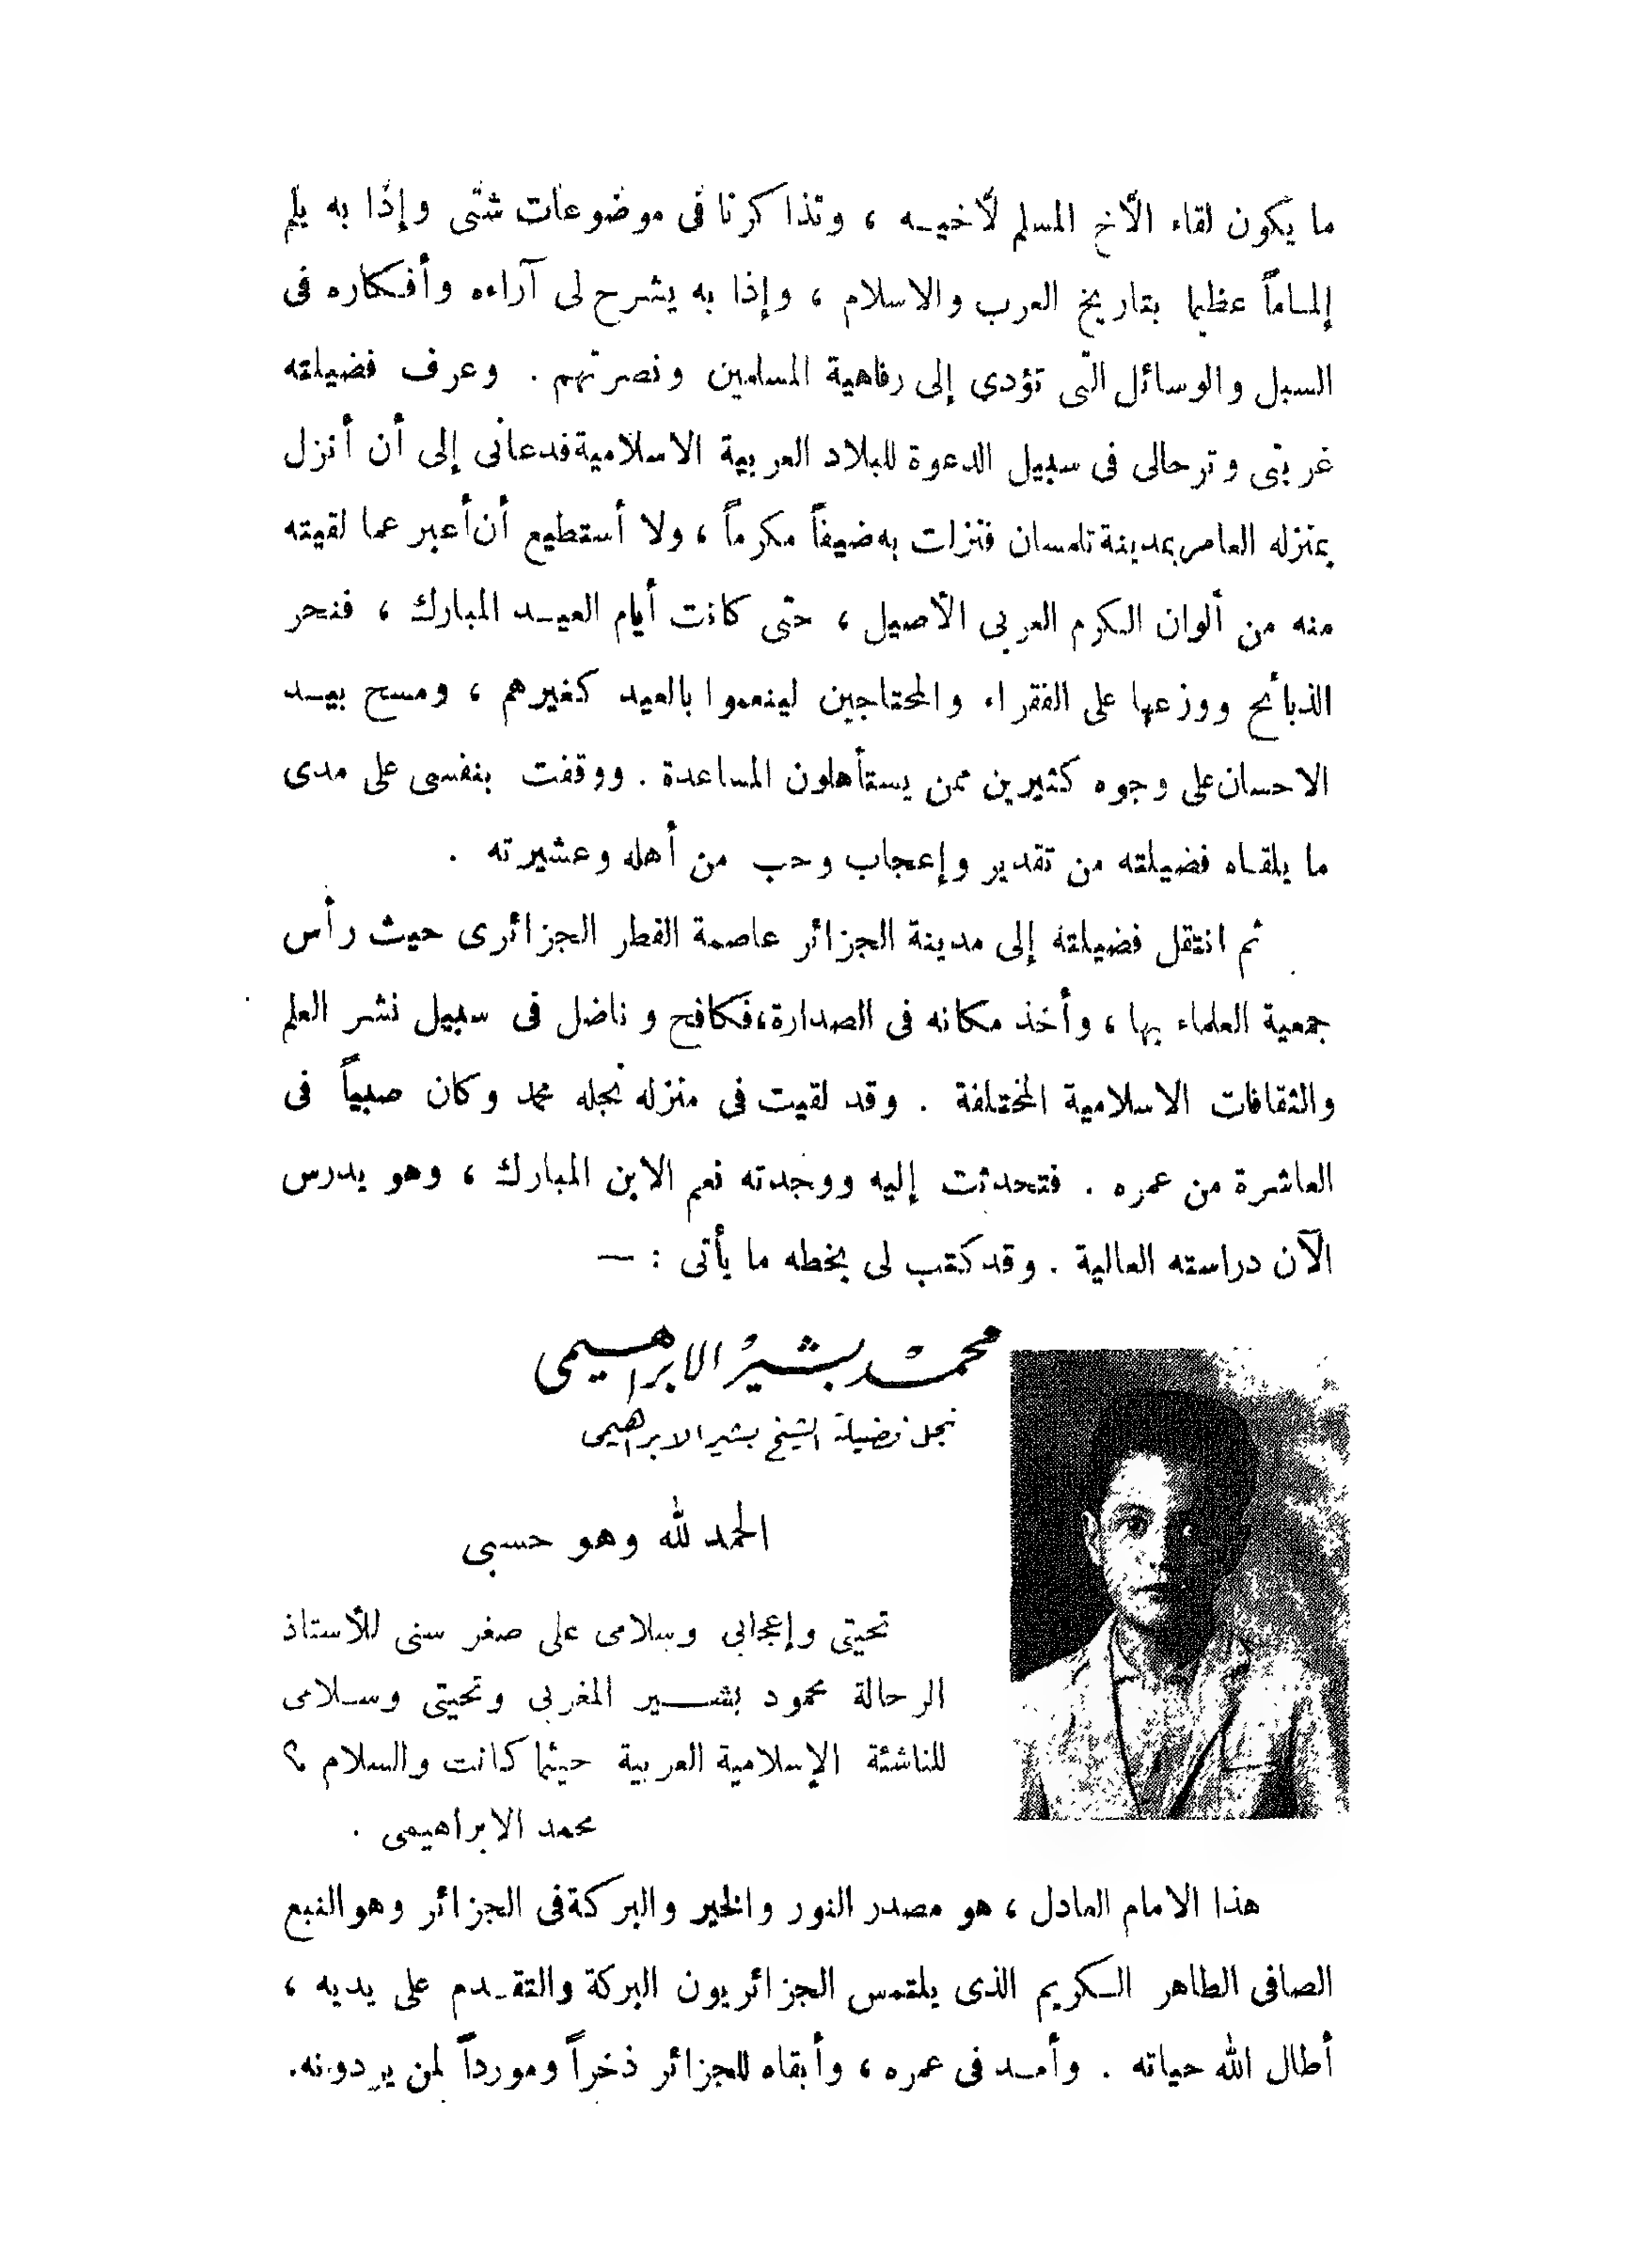 ما يكون لقاء الأخ المسلم لأخيه ، وتذاكرنا في موضوعات شتى وإذا به يلم
إلماماً عظيما بتاريخ العرب والاسلام ، وإذا به يشرح لى آراءه وأفكاره فى
السبل والوسائل التى تؤدى إلى رفاهية المسلمين ونصرتهم . وعرف فضيلته
غربتى وترحالى فى سبيل الدعوة للبلاد العربية الاسلامية فدعانى إلى أن أنزل
بمنزله العامر بمدينة تلمسان فنزلت به ضيفاً مكرماً ، ولا أستطيع أن أعبر عما لقيته
منه من ألوان الكرم العربى الأصيل ، حتى كانت أيام العيد المبارك ، فنحر
الذبائح ووزعها على الفقراء والمحتاجين لينعموا بالعيد كغيرهم ، ومسح بيد
الاحسان على وجوه كثيرين ممن يستأهلون المساعدة . ووقفت بنفسى على مدى
ما يلقاه فضيلته من تقدير وإعجاب وحب من أهله وعشيرته .
ثم انتقل فضيلته إلى مدينة الجزائر عاصمة القطر الجزائرى حيث رأس
جمعية العلماء بها ، وأخذ مكانه فى الصدارة، فكافح وناضل فى سبيل نشر العلم
والثقافات الاسلامية المختلفة . وقد لقيت فى منزله نجله محمد وكان صبياً فى
العاشرة من عمره . فتحدثت إليه ووجدته نعم الابن المبارك ، وهو يدرس
الآن دراسته العالية . وقد كتب لى بخطه ما يأتى : —
محمد بشير الابراهيمى
نجل فضيلة الشيخ بشير الابراهيمى
الحمد لله وهو حسبى
تحيتى وإعجابى وسلامى على صغر سنى للأستاذ
الرحالة محمود بشير المغربى وتحيتى وسلامى
للناشئة الإسلامية العربية حيثما كانت والسلام ؟
محمد الابراهيمى .
هذا الامام العادل ، هو مصدر النور والخير والبركة فى الجزائر وهو النبع
الصافى الطاهر الكريم الذى يلتمس الجزائريون البركة والتقدم على يديه ،
أطال الله حياته . وأمد فى عمره ، وأبقاه للجزائر ذخراً ومورداً لمن يردونه.